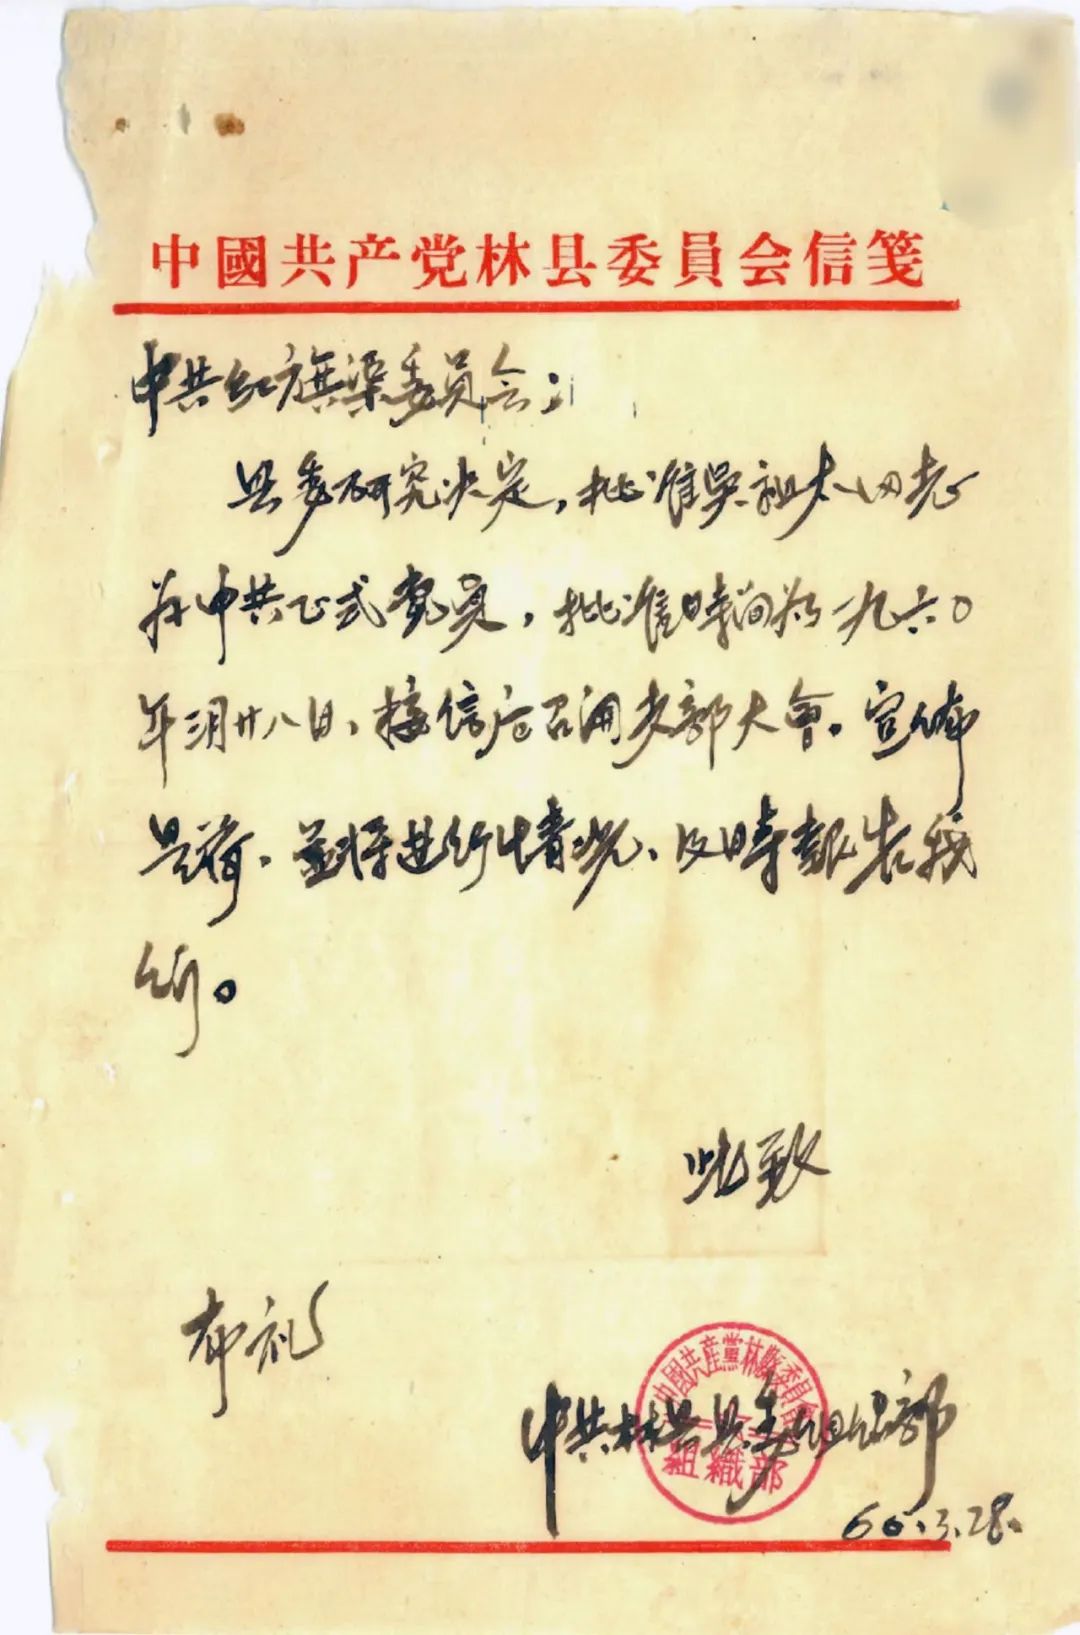 中國共产党林县委員会信笺
中共红旗渠委员会：
县委研究决定，批准吴祖太同志
为中共正式党员，批准時间为一九六〇
年三月廿八日、接信后召开支部大會。宣佈
是荷、並将进行情况、及時報告我
们。
此致
布礼
中國共産黨林縣委員會
組織部
中共林县县委组织部
60.3.28.